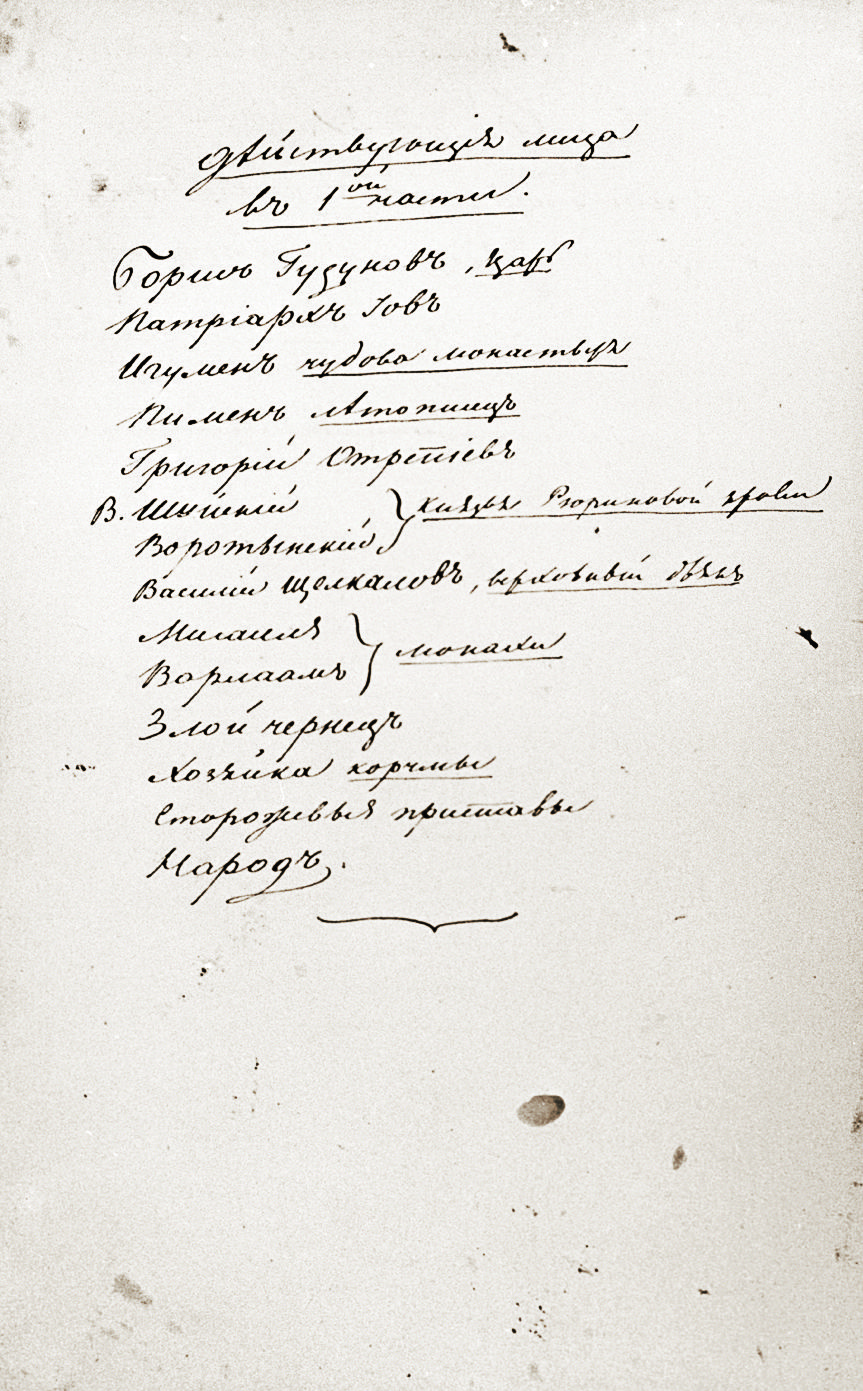 дѣйствующія лица
въ 1ой части.
Борисъ Годуновъ, царь
Патріархъ Іовъ
Игуменъ чудова монастыря
Пименъ лѣтописецъ
Григорій Отрепіевъ
В. Шуйскій } князья Рюриковой крови
Воротынскій
Василій Щелкаловъ, верховный дьякъ
Мисаилъ } монахи
Варлаамъ
Злой чернецъ
Хозяйка корчмы
Сторожевыя приставы
Народъ.